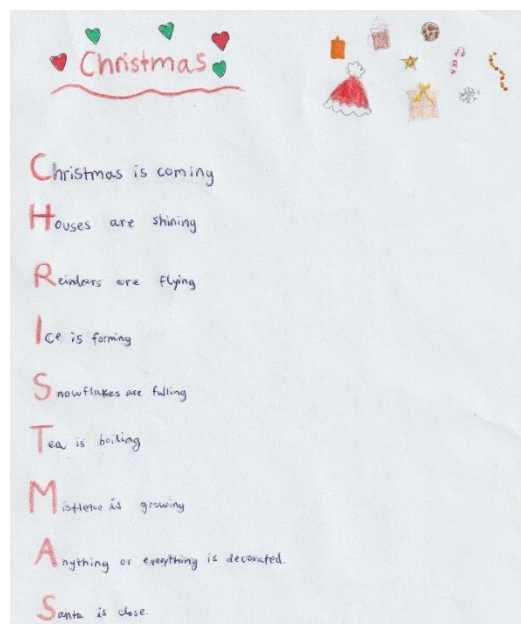 Christmas
Christmas is coming
Houses are shining
Reinders are flying
Ice is forming
Snowflakes are falling
Tea is boiling
Mistletoe is growing
Anything or everything is decorated.
Santa is close.